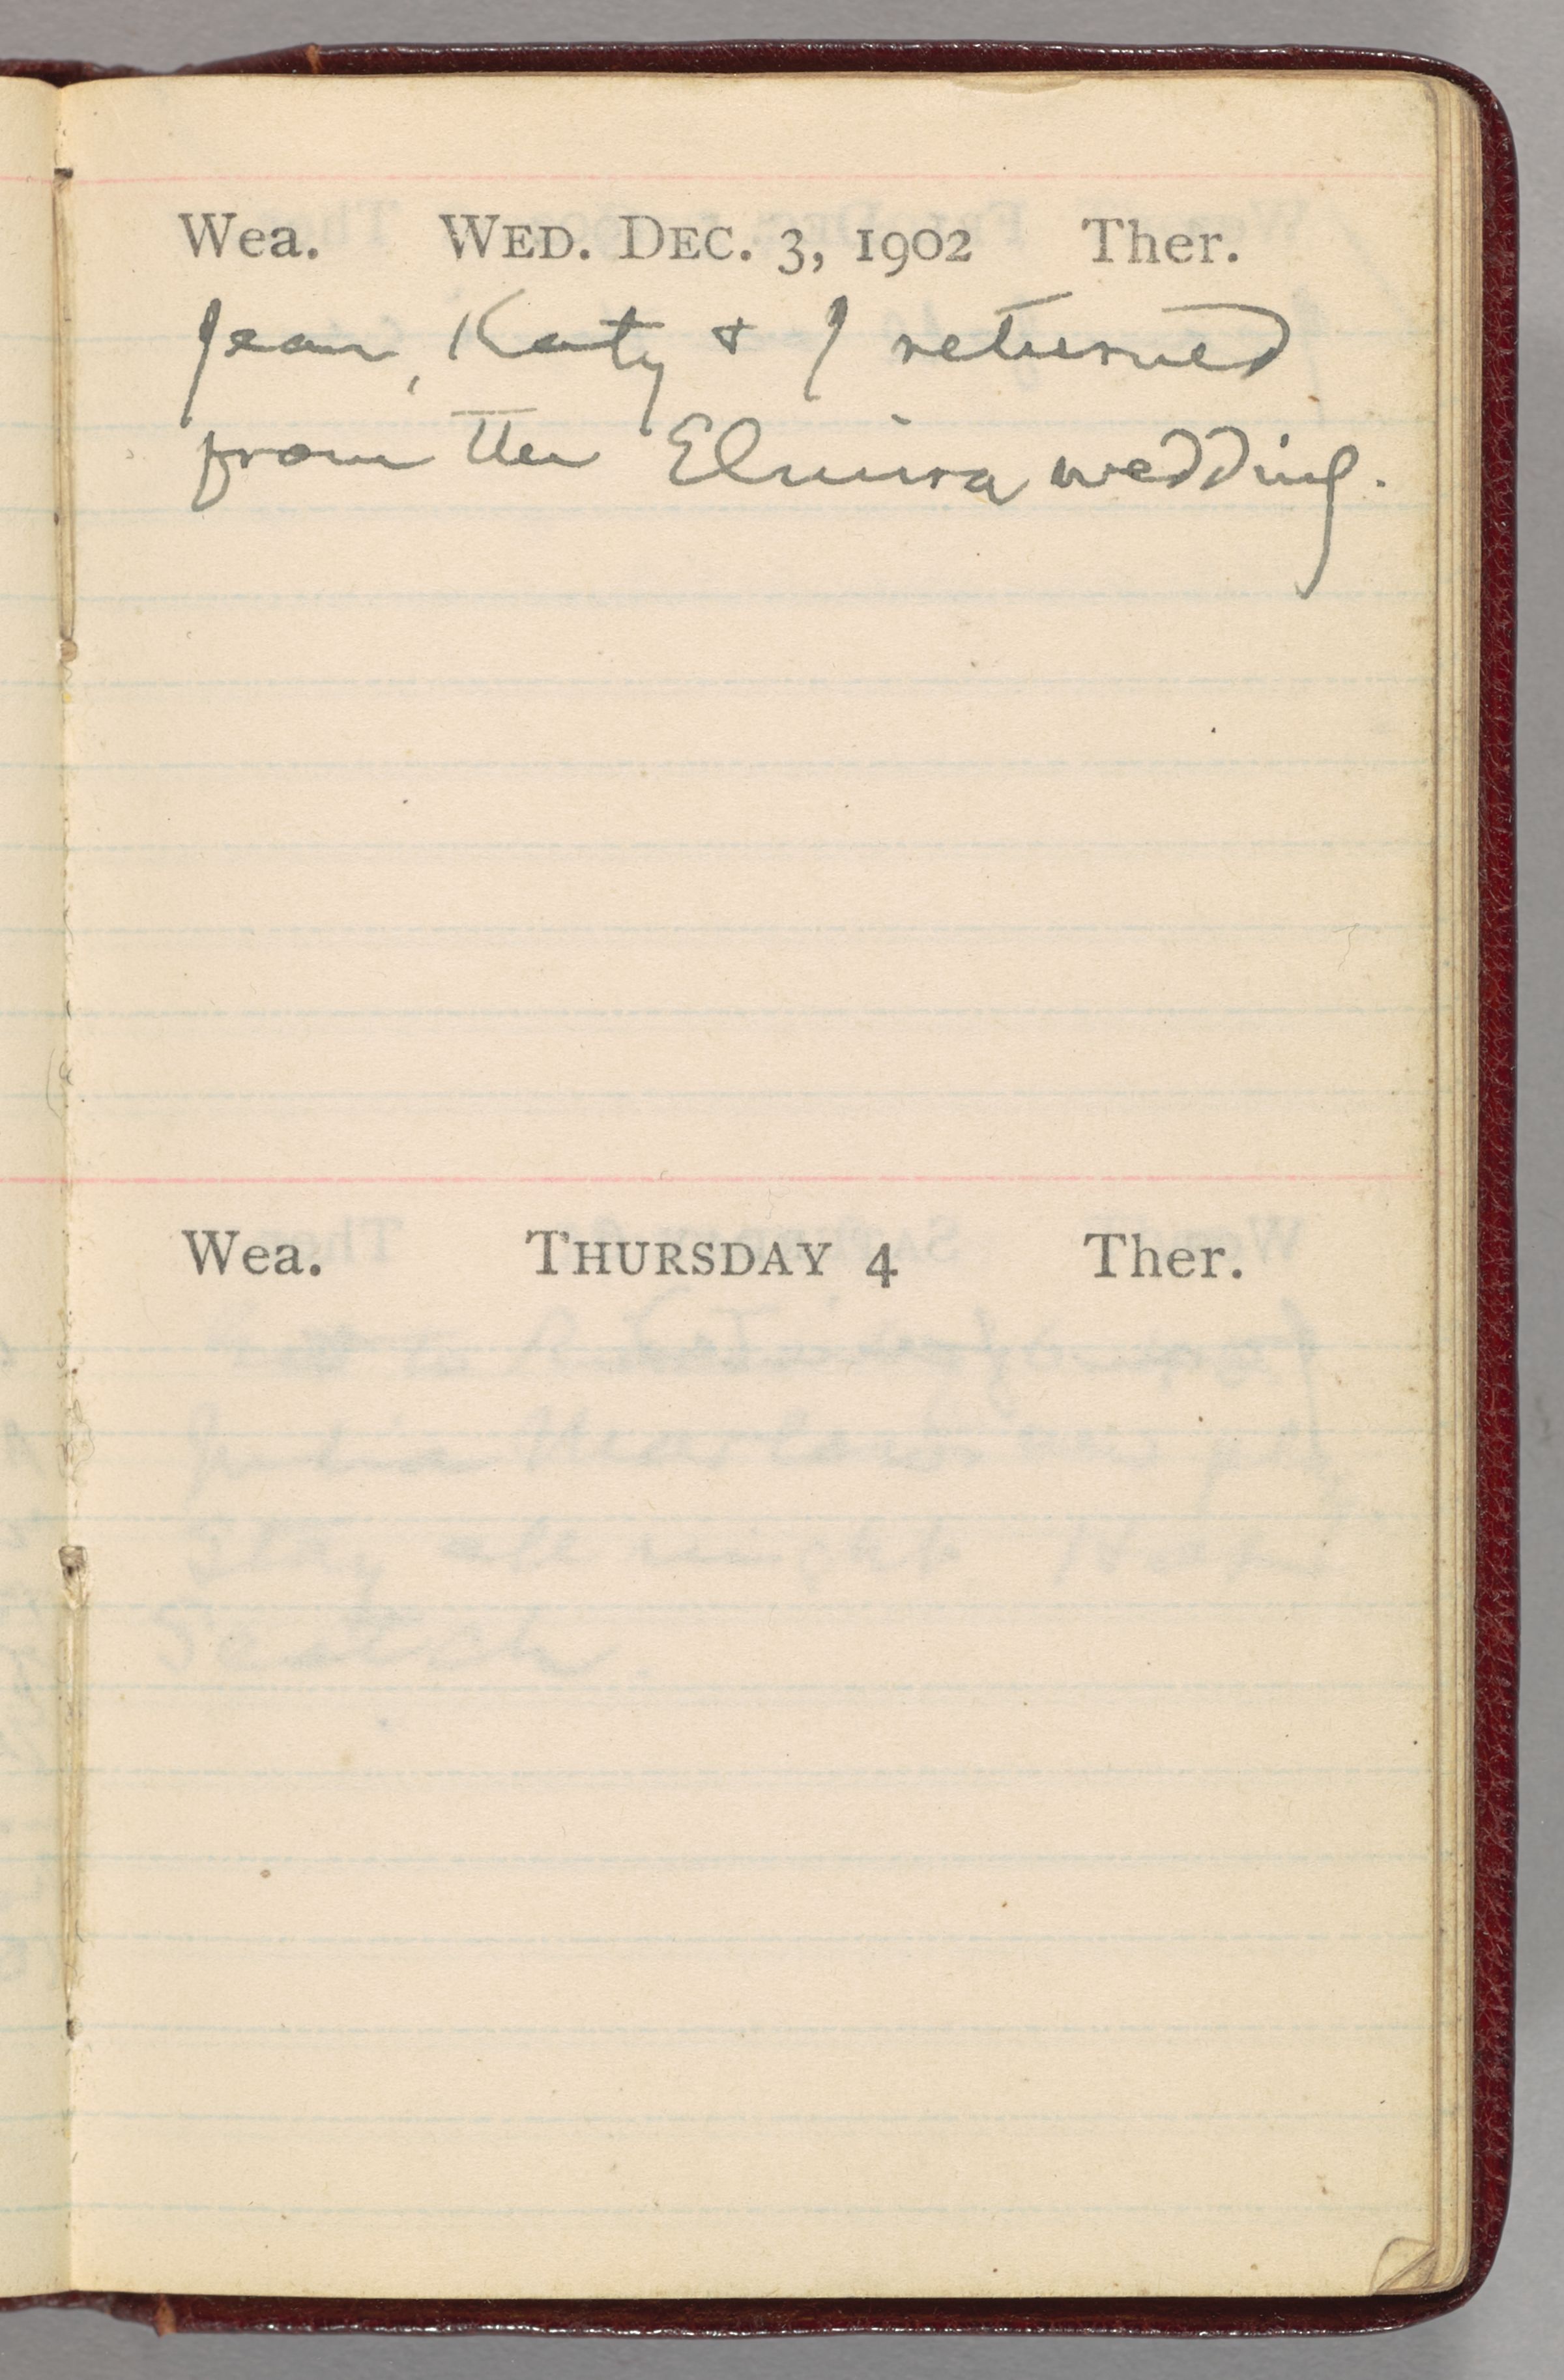 Wea. WED. DEC. 3, 1902 Ther.
Jean, Katy & I returned
from the Elmira wedding.
Wea. THURSDAY 4 Ther.